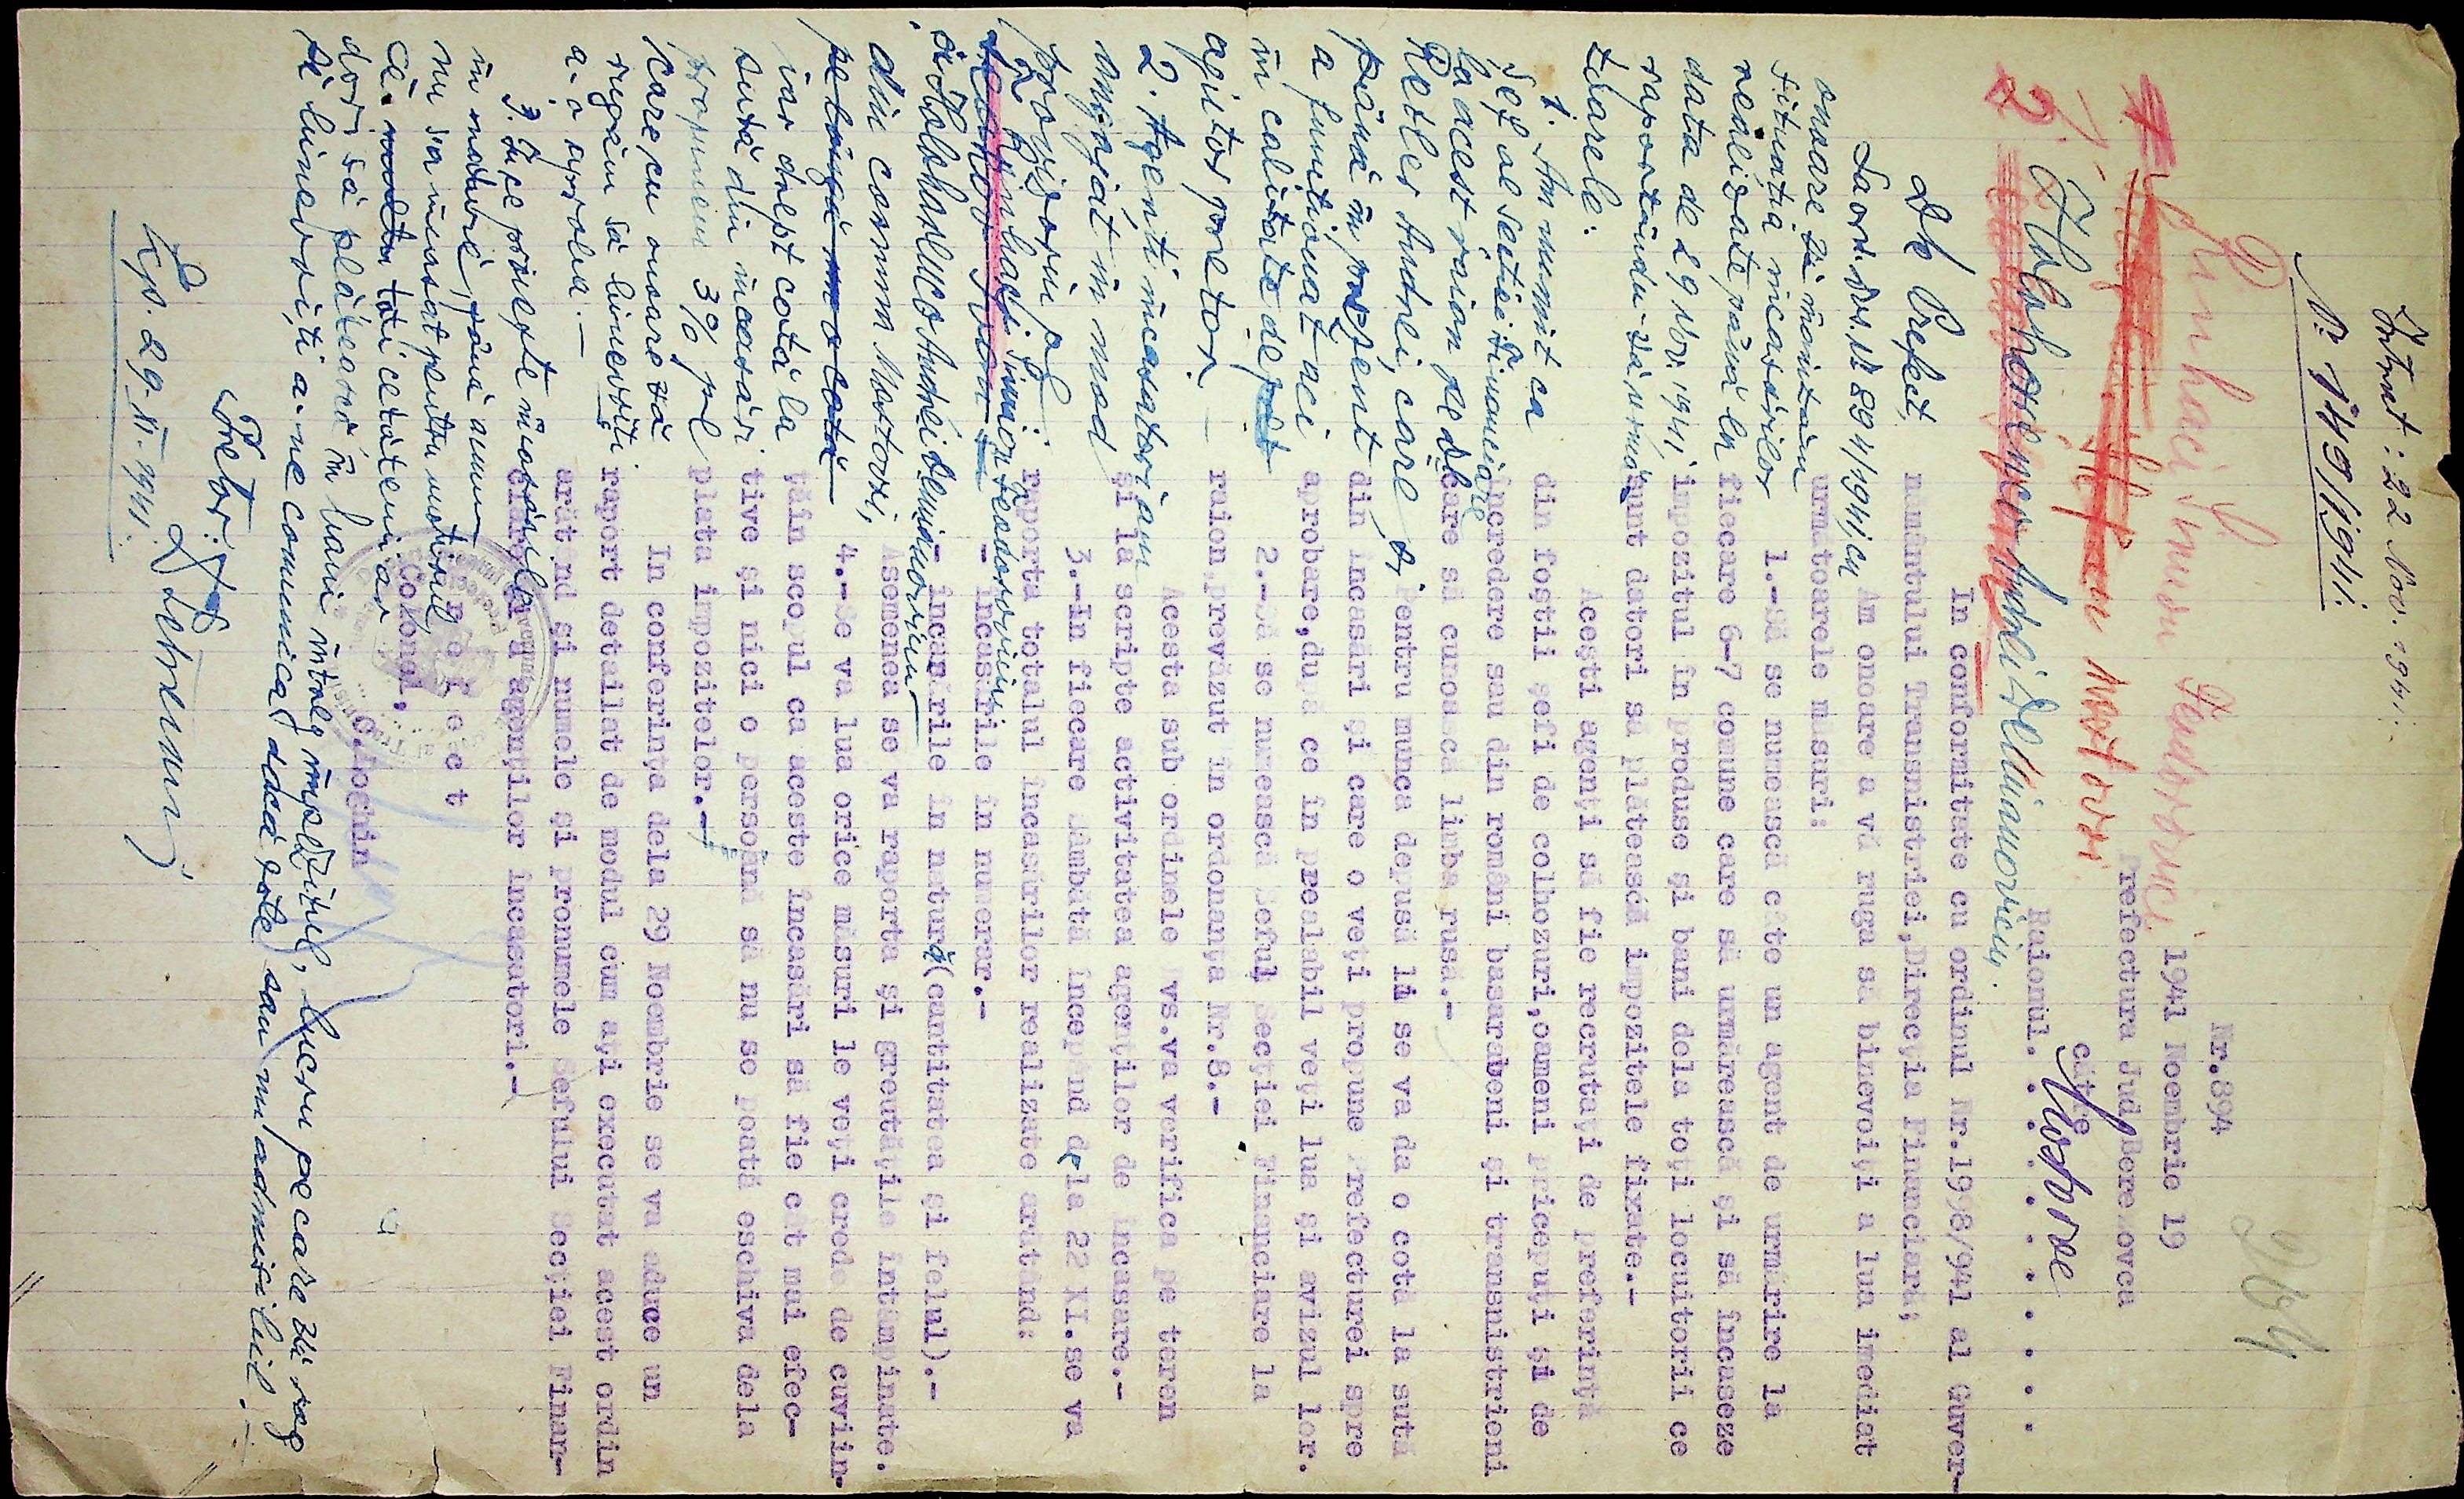 Intrat: 22 Nov. 1941.
Nr 149/1941.
264
Nr.894
1941 Noembrie 19
Prefectura Jud Berezovca
către
Raionul. Mostovoe
1. Pinhaci Simion Feodorovici
Mostovoi
2. Holohorenco Andrei Demianovici.
In conformitate cu ordinul Nr.1998/941 al Guver-
nământului Transnistriei,Direcția Financiară;
Am onoare a vă ruga să binevoiți a lua imediat
următoarele măsuri:
1.-Să se numească câte un agent de urmărire la
fiecare 6-7 comune care să urmărească și să încaseze
impozitul în produse și bani dela toți locuitorii ce
sunt datori să plătească impozitele fixate.-
Acești agenți să fie recrutați de preferință
din foștii șefi de colhozuri,oameni pricepuți și de
încredere sau din români basarabeni și transnistrieni
care să cunoască limba rusă.-
Pentru munca depusă li se va da o cotă la sută
din încasări și care o veți propune Prefecturei spre
aprobare,după ce în prealabil veți lua și avizul lor.
2.-Să se numească Șeful Secției Financiare la
raion,prevăzut în ordonanța Nr.8.-
Acesta sub ordinele Dvs.va verifica pe teren
și la scripte activitatea agenților de încasare.-
3.-In fiecare Sâmbătă începând dela 22 XI.se va
raporta totalul încasărilor realizate arătând:
- încasările în numerar.-
- încasările în natură(cantitatea și felul).-
Asemenea se va raporta și greutățile întâmpinate.
4.-Se va lua orice măsuri le veți crede de cuviin-
ță în scopul ca aceste încasări să fie cât mai efec-
tive și nici o persoană să nu se poată eschiva dela
plata impozitelor.-
In conferința dela 29 Noembrie se va aduce un
raport detailat de modul cum ați executat acest ordin
arătând și numele și pronumele Șefului Secției Finan-
ciare și a agenților încasatori.-
P r e f e c t
Colonel,
C.Loghin
Dle Prefect,
La ord. Dvs. Nr 894/1941, cu
onoare vă înaintăm
situația încasărilor
realizate până la
data de 29 Nbr. 1941
raportându-vă urmă-
toarele:
1. Am numit ca
Șef al Secției Financiare
la acest raion pe dl
Resler Andrei, care și
până în prezent
a funcționat aci
în calitate de
ajutor pretor. -
2. Agenți încasatori am
angajat în mod
provizoriu pe:
Pinhaci Simion Feodorovici
și Holohorenco Andrei Demianovici
din comuna Mostovoi,
iar drept cotă la
sută din încasări
propunem 3% pe
care cu onoare vă
rugăm să binevoiți
a-o aproba. -
3. În ce privește încasările
în natură, până acum
nu s'a încasat pentru motivul
că toți cetățenii ar
dori să plătească în bani întreg impozitul, lucru pe care vă rog
să binevoiți a-ne comunica dacă este sau nu admisibil. -
Pretor:
Exp. 29.XI.1941.